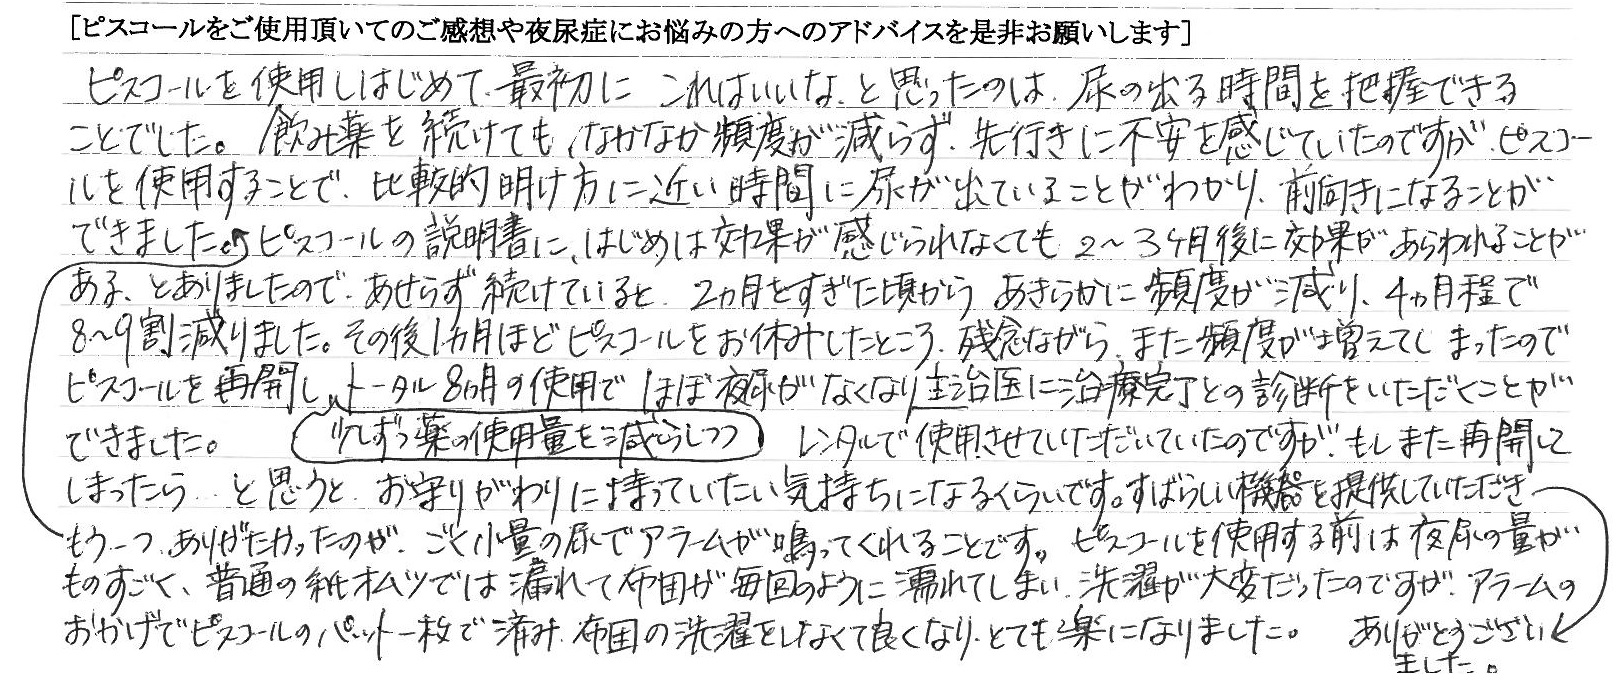 [ピスコールをご使用頂いてのご感想や夜尿症にお悩みの方へのアドバイスを是非お願いします]
ピスコールを使用しはじめて、最初に これはいいな、と思ったのは、尿の出る時間を把握できる
ことでした。飲み薬を続けても、なかなか頻度が減らず、先行きに不安を感じていたのですが、ピスコー
ルを使用することで、比較的明け方に近い時間に尿が出ていることがわかり、前向きになることが
できました。ピスコールの説明書に、はじめは効果が感じられなくても2〜3ヶ月後に効果があらわれることが
ある、とありましたので、あせらず続けていると、2ヵ月をすぎた頃から、あきらかに頻度が減り、4ヵ月程で
8〜9割減りました。その後1ヵ月ほどピスコールをお休みしたところ、残念ながら、また頻度が増えてしまったので
ピスコールを再開し、トータル8ヵ月の使用でほぼ夜尿がなくなり主治医に治療完了との診断をいただくことが
できました。 少しずつ薬の使用量を減らしつつ レンタルで使用させていただいていたのですが、もしまた再開して
しまったら…と思うと、お守りがわりに持っていたい気持ちになるくらいです。すばらしい機器を提供していただき
もう一つ、ありがたかったのが、ごく小量の尿でアラームが鳴ってくれることです。ピスコールを使用する前は夜尿の量が
ものすごく、普通の紙オムツでは漏れて布団が毎回のように濡れてしまい、洗濯が大変だったのですが、アラームの
おかげでピスコールのパット一枚で済み、布団の洗濯をしなくて良くなり、とても楽になりました。 ありがとうござい
ました。